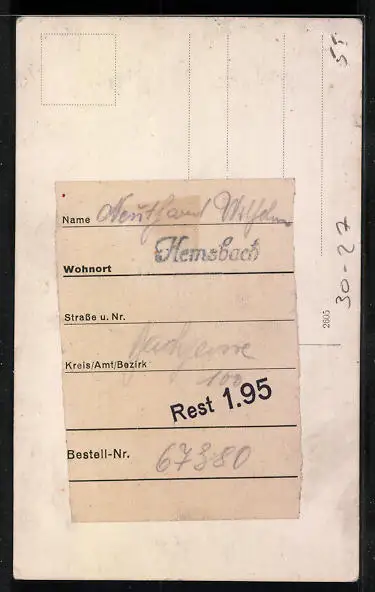 55
30-27
2605
Name Wilhelm
Wohnort Hemsbach
Straße u. Nr.
Kreis/Amt/Bezirk
100
Rest 1.95
Bestell-Nr. 67380